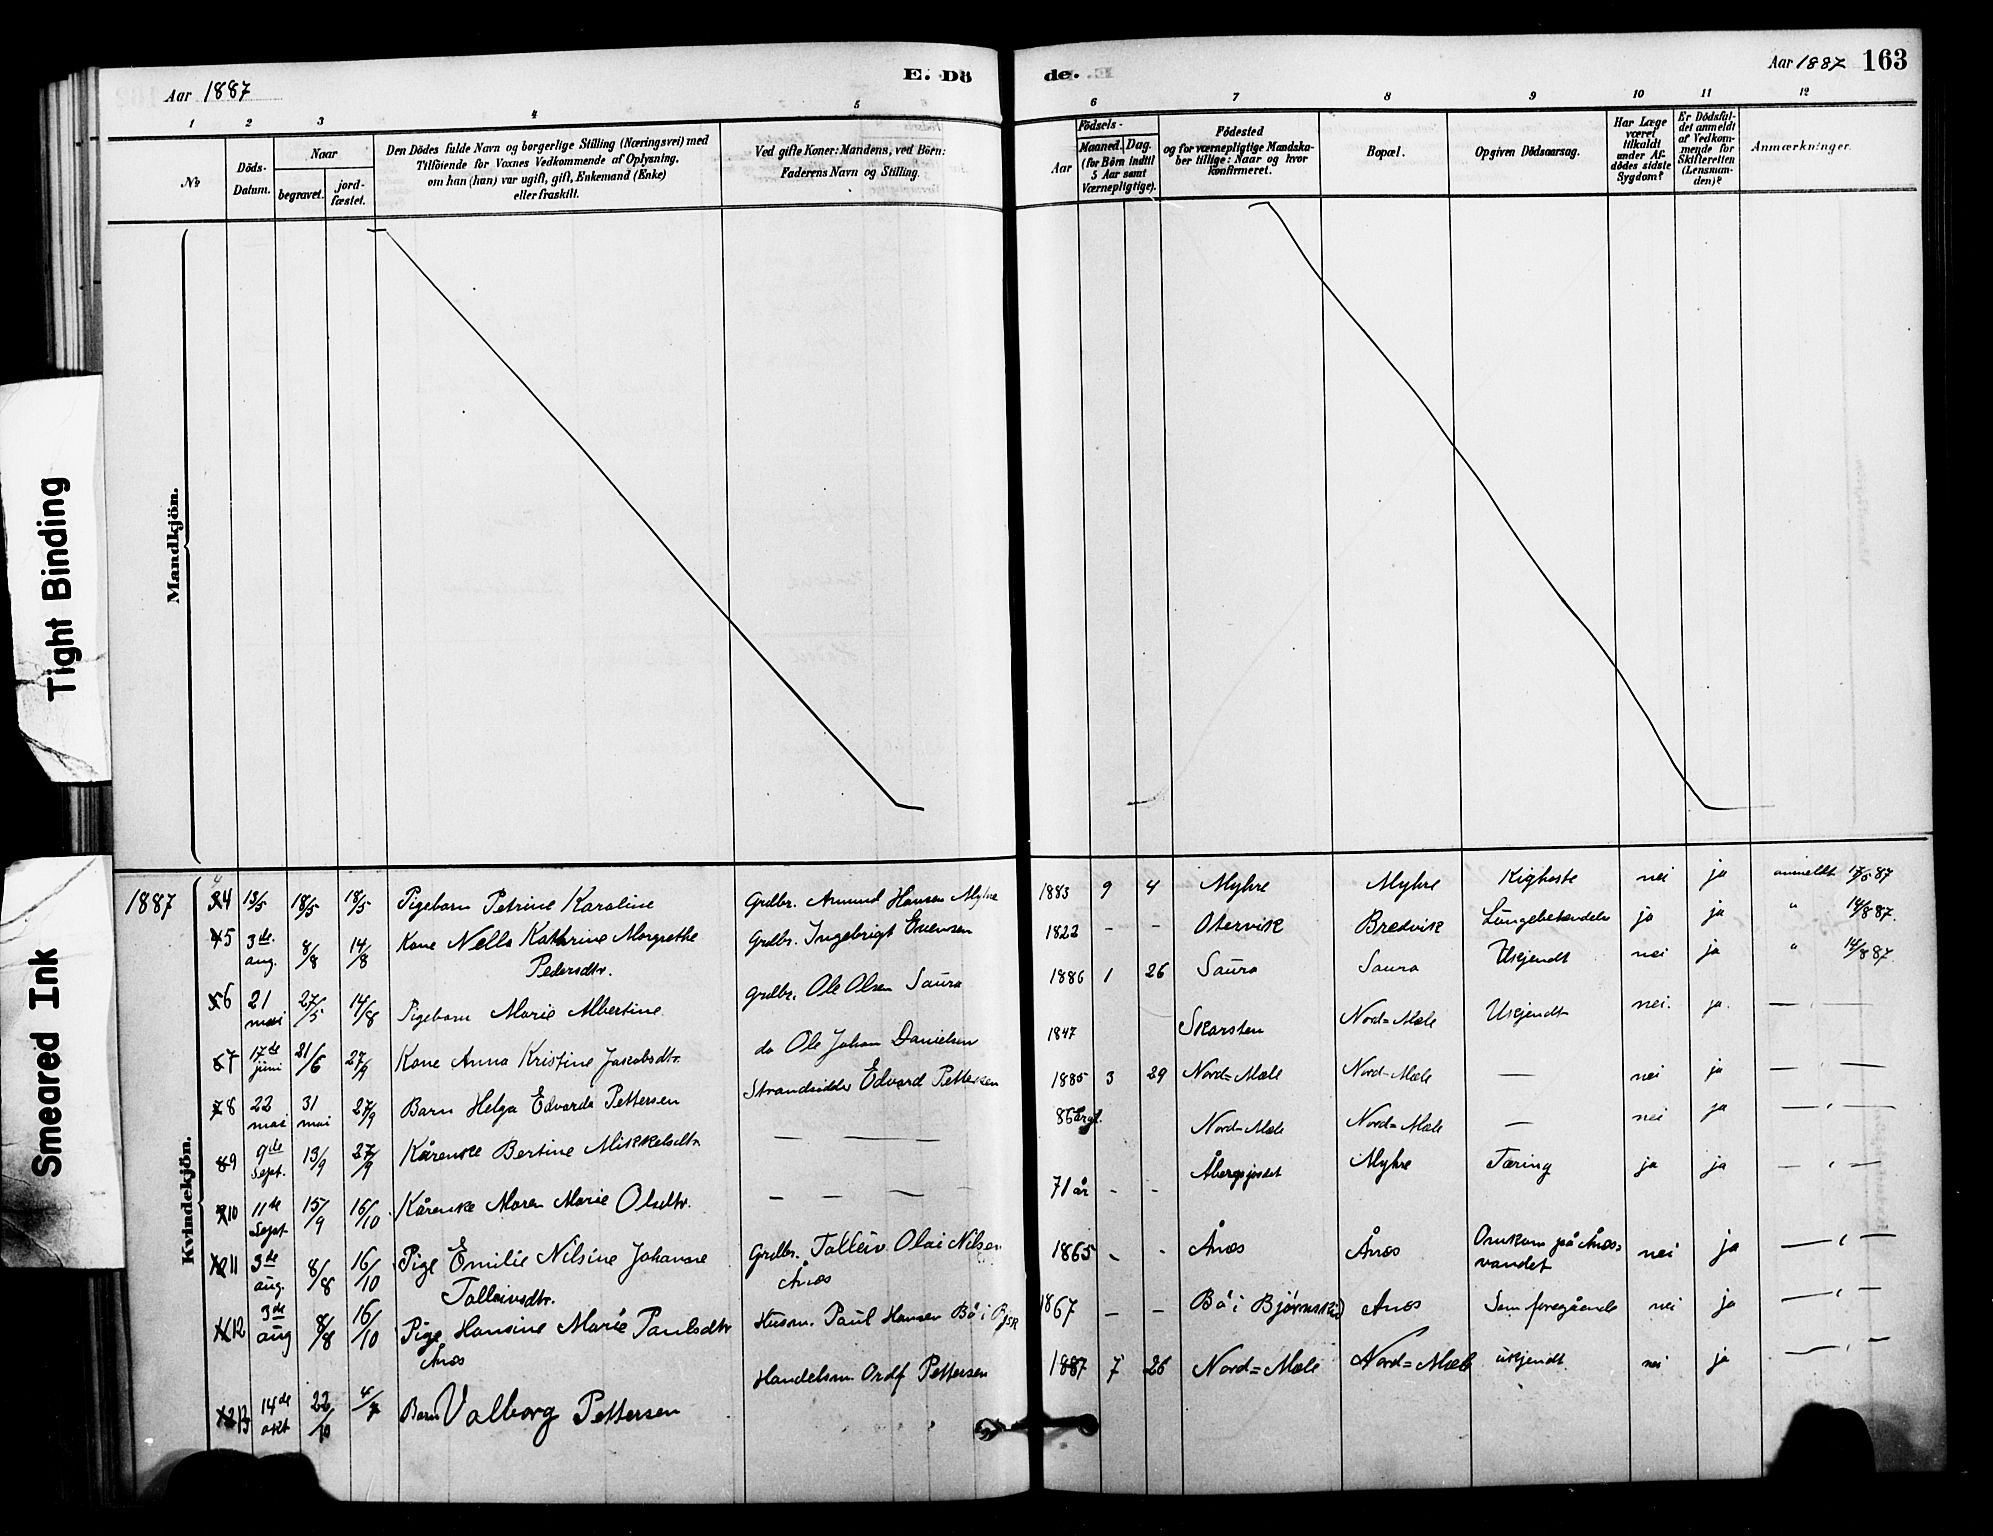 Aar 1887
E. Dö
de.
Aar 1887 163
1 2 3 4 5 6 7 8 9 10 11 12
№
Döds-
Datum.
Naar
begravet.
jord-
fæstet.
Den Dödes fulde Navn og borgerlige Stilling (Næringsvei) med
Tilföiende for Voxnes Vedkommende af Oplysning.
om han (hun) var ugift, gift, Enkemand (Enke)
eller fraskilt.
Ved gifte Koner: Mandens, ved Börn:
Faderens Navn og Stilling.
Födsels-
Aar
Maaned. Dag.
(for Börn indtil
5 Aar samt
Værnepligtige).
Födested
og for værnepligtige Mandska-
ber tillige: Naar og hvor
konfirmeret.
Bopæl.
Opgiven Dödsaarsag.
Har Læge
været
tilkaldt
under Af-
dödes sidste
Sygdom?
Er Dödsfal-
det anmeldt
af Vedkom-
mende for
Skifteretten
(Lensman-
den)?
Anmærkninger.
Tight Binding
Smeared Ink
Mandkjön.
Kvindekjön.
1887 4 13/5 18/5 18/5 Pigebarn Petrine Karoline Grdbr. Amund Hansen Myhre 1883 9 4 Myhre Myhre Kighoste nei ja anmeldt 17/5 87
5 3de aug. 8/8 14/8 Kone Nella Kathrine Margrethe Grdbr. Ingebrigt Evensen 1822 - - Otervik Bredvik ja ja " 14/8 87.
Pedersdtr.
6 21 mai 27/5 14/8 Pigebarn Marie Albertine Grdbr. Ole Olsen Saura 1886 1 26 Saura Saura Ukjendt nei ja " 14/8 87
7 17de juni 21/6 27/9 Kone Anna Kristine Jacobsdtr. do Ole Johan Danielsen 1847 Skarsten Nord=Mæle Ukjendt nei. ja. — " —
8 22 mai 31 mai 27/9 Barn Helga Edvarda Pettersen Strandsidder Edvard Pettersen 1885 3 29 Nord=Mæle Nord=Mæle — nei ja — " —
9 9de Sept. 13/9 27/9 Kårenke Bertine Mikkelsdtr. — — — Nord=Mæle Nord=Mæle — nei ja — " —
10 11de Sept 15/9 16/10 Kårenke Maren Marie Olsdtr. — — — — 71 år - - Myhre Tæring ja ja — " —
11 3de aug. 8/8 16/10 Pige Emilie Nilsine Johanne Grdbr. Tolleiv Olai Nilsen 1865 - - Ånæs Ånæs Omkom på Ånæs= nei ja — " —
Tolleivsdtr. Ånæs vandet
12 3de aug 8/8 16/10 Pige Hansine Marie Paulsdtr Husm. Paul Hansen Bö i 1867 - - Bö i Ånæs Som foregående nei ja — " —
Ånæs
13 14de okt 22/10 Barn Valborg Pettersen Handelsm. Pettersen 1887 7 26 Nord=Mæle Nord=Mæle ukjendt nei ja — " —